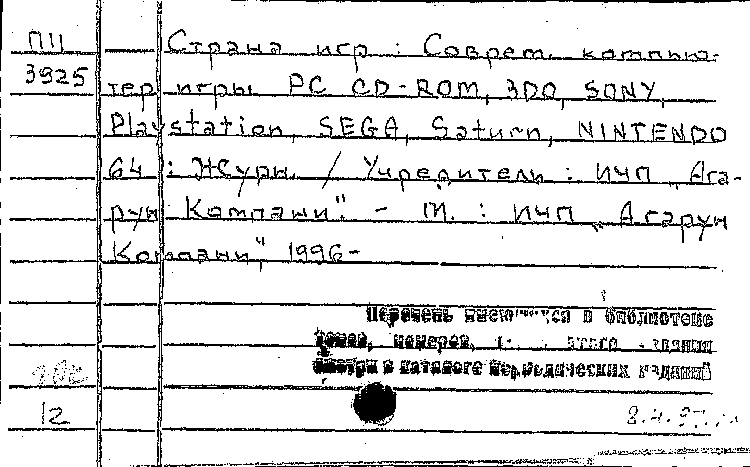 П11 Страна игр : Соврем. компью-
3925 тер. игры PC CD-ROM, 3DO, SONY,
Playstation, SEGA, Saturn, NINTENDO
64 : Журн. / Учредители : ИЧП „Ага-
рун Компани". - М. : ИЧП „Агарун
Компани", 1996-
Перечень имеющихся в библиотеке
томов, номеров, этого издания
смотри в каталоге периодических изданий
12